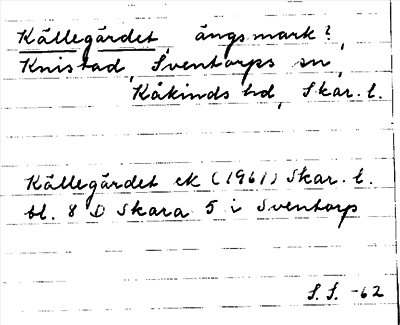 Källegärdet ängsmark?,
Knistad, Sventorps sn,
Kåkinds hd, Skar. l.
Källegärdet ek (1961) Skar. l.
bl. 8 D Skara 5 i Sventorp
S. S. -62